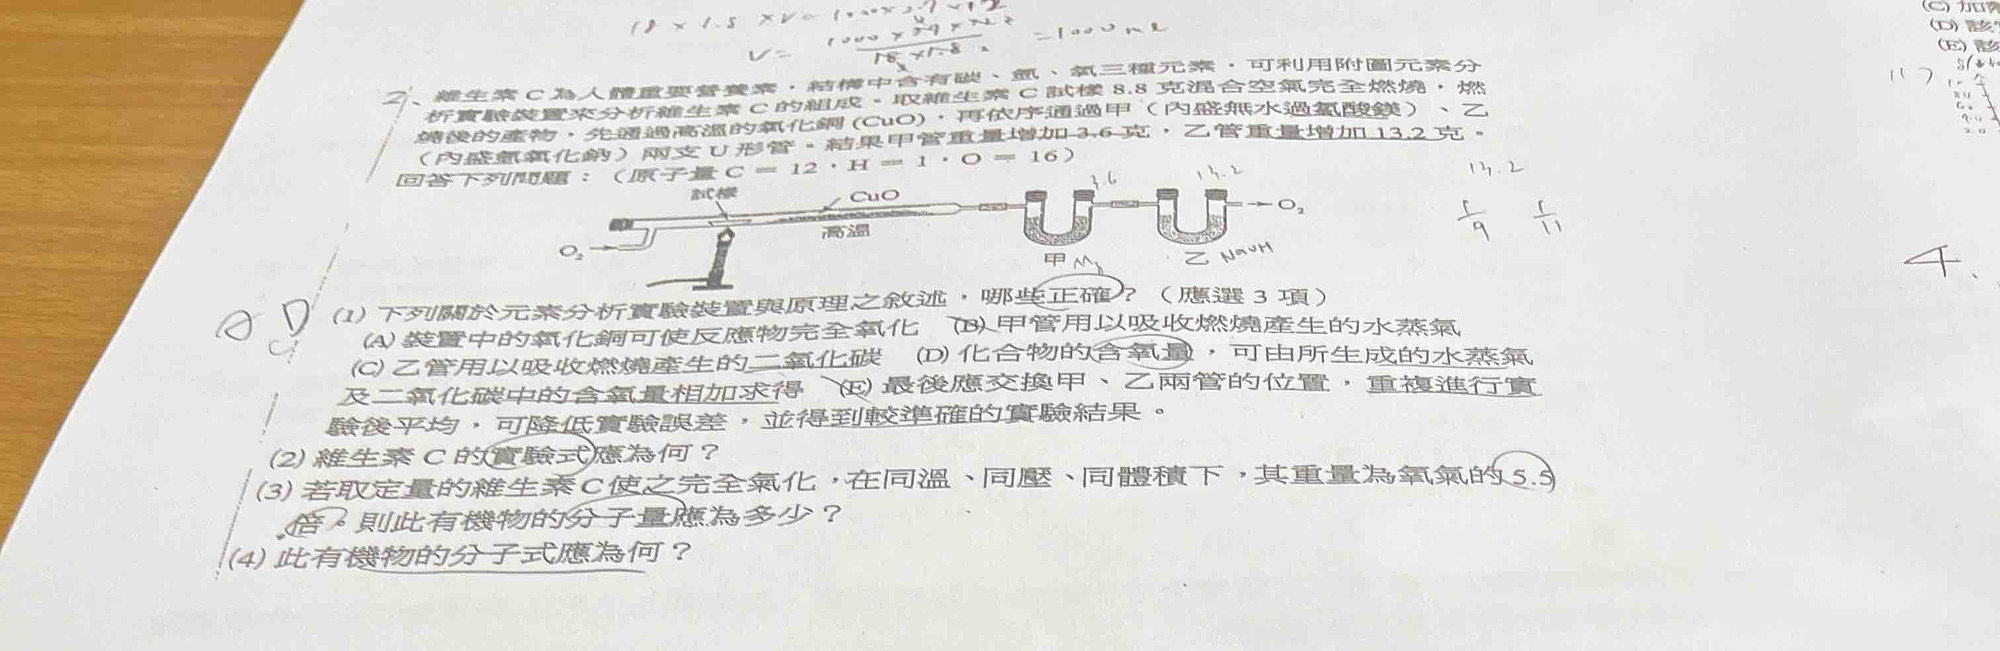 18 × 1.8 × V =
V =
= 1000 ml
2、維生素 C 為人體重要營養素，結構中含有碳、氫、氧三種元素，可利用附圖元素分
析實驗裝置來分析維生素 C 的組成。取維生素 C 試樣 8.8 克混合空氣完全燃燒，燃
燒後的產物，先通過高溫的氧化銅 (CuO)，再依序通過甲（內盛無水過氯酸鎂）、乙
（內盛氫氧化鈉）兩支 U 形管。結果甲管重量增加 3.6 克，乙管重量增加 13.2 克。
回答下列問題：（原子量 C = 12，H = 1，O = 16）
試樣
CuO
3.6
13.2
O₂
高溫
O₂
甲 Mg
乙 NaOH
13.2
A D
C
(1) 下列關於元素分析實驗裝置與原理之敘述，哪些正確？（應選 3 項）
(A) 裝置中的氧化銅可使反應物完全氧化 (B) 甲管用以吸收燃燒產生的水蒸氣
(C) 乙管用以吸收燃燒產生的二氧化碳 (D) 化合物的含氧量，可由所生成的水蒸氣
及二氧化碳中的含氧量相加求得 (E) 最後應交換甲、乙兩管的位置，重複進行實
驗後平均，可降低實驗誤差，並得到較準確的實驗結果。
(2) 維生素 C 的實驗式應為何？
(3) 若取定量的維生素 C 使之完全氣化，在同溫、同壓、同體積下，其重量為氧氣的 5.5
倍。則此有機物的分子量應為多少？
(4) 此有機物的分子式應為何？
(C) 加
(D) 該
(E) 該
4.